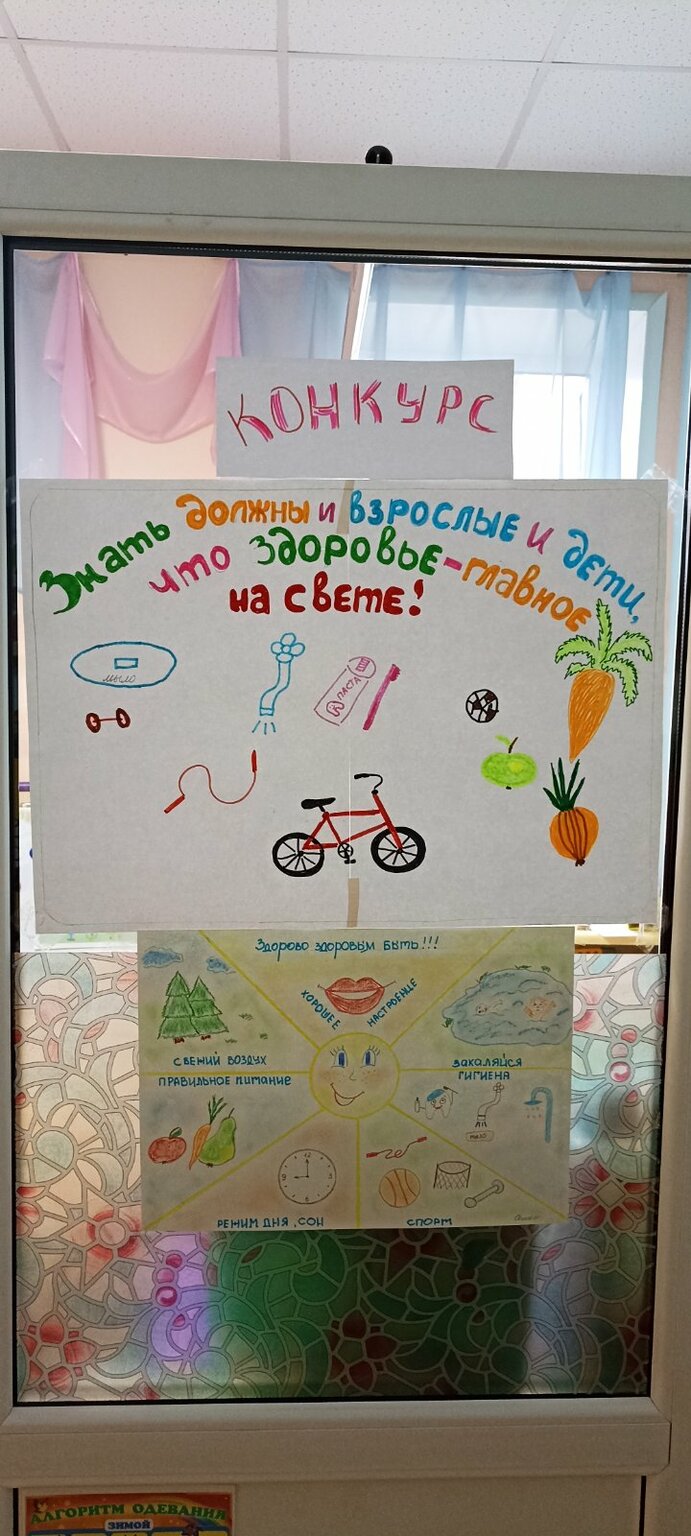 КОНКУРС
Знать должны и взрослые и дети,
что здоровье-главное
на свете!
мыло
ПАСТА
Здорово здоровым быть!!!
ХОРОШЕЕ НАСТРОЕНИЕ
СВЕЖИЙ ВОЗДУХ
ЗАКАЛЯЙСЯ
ПРАВИЛЬНОЕ ПИТАНИЕ
ГИГИЕНА
РЕЖИМ ДНЯ, СОН
СПОРТ
АЛГОРИТМ ОДЕВАНИЯ
ЗИМОЙ